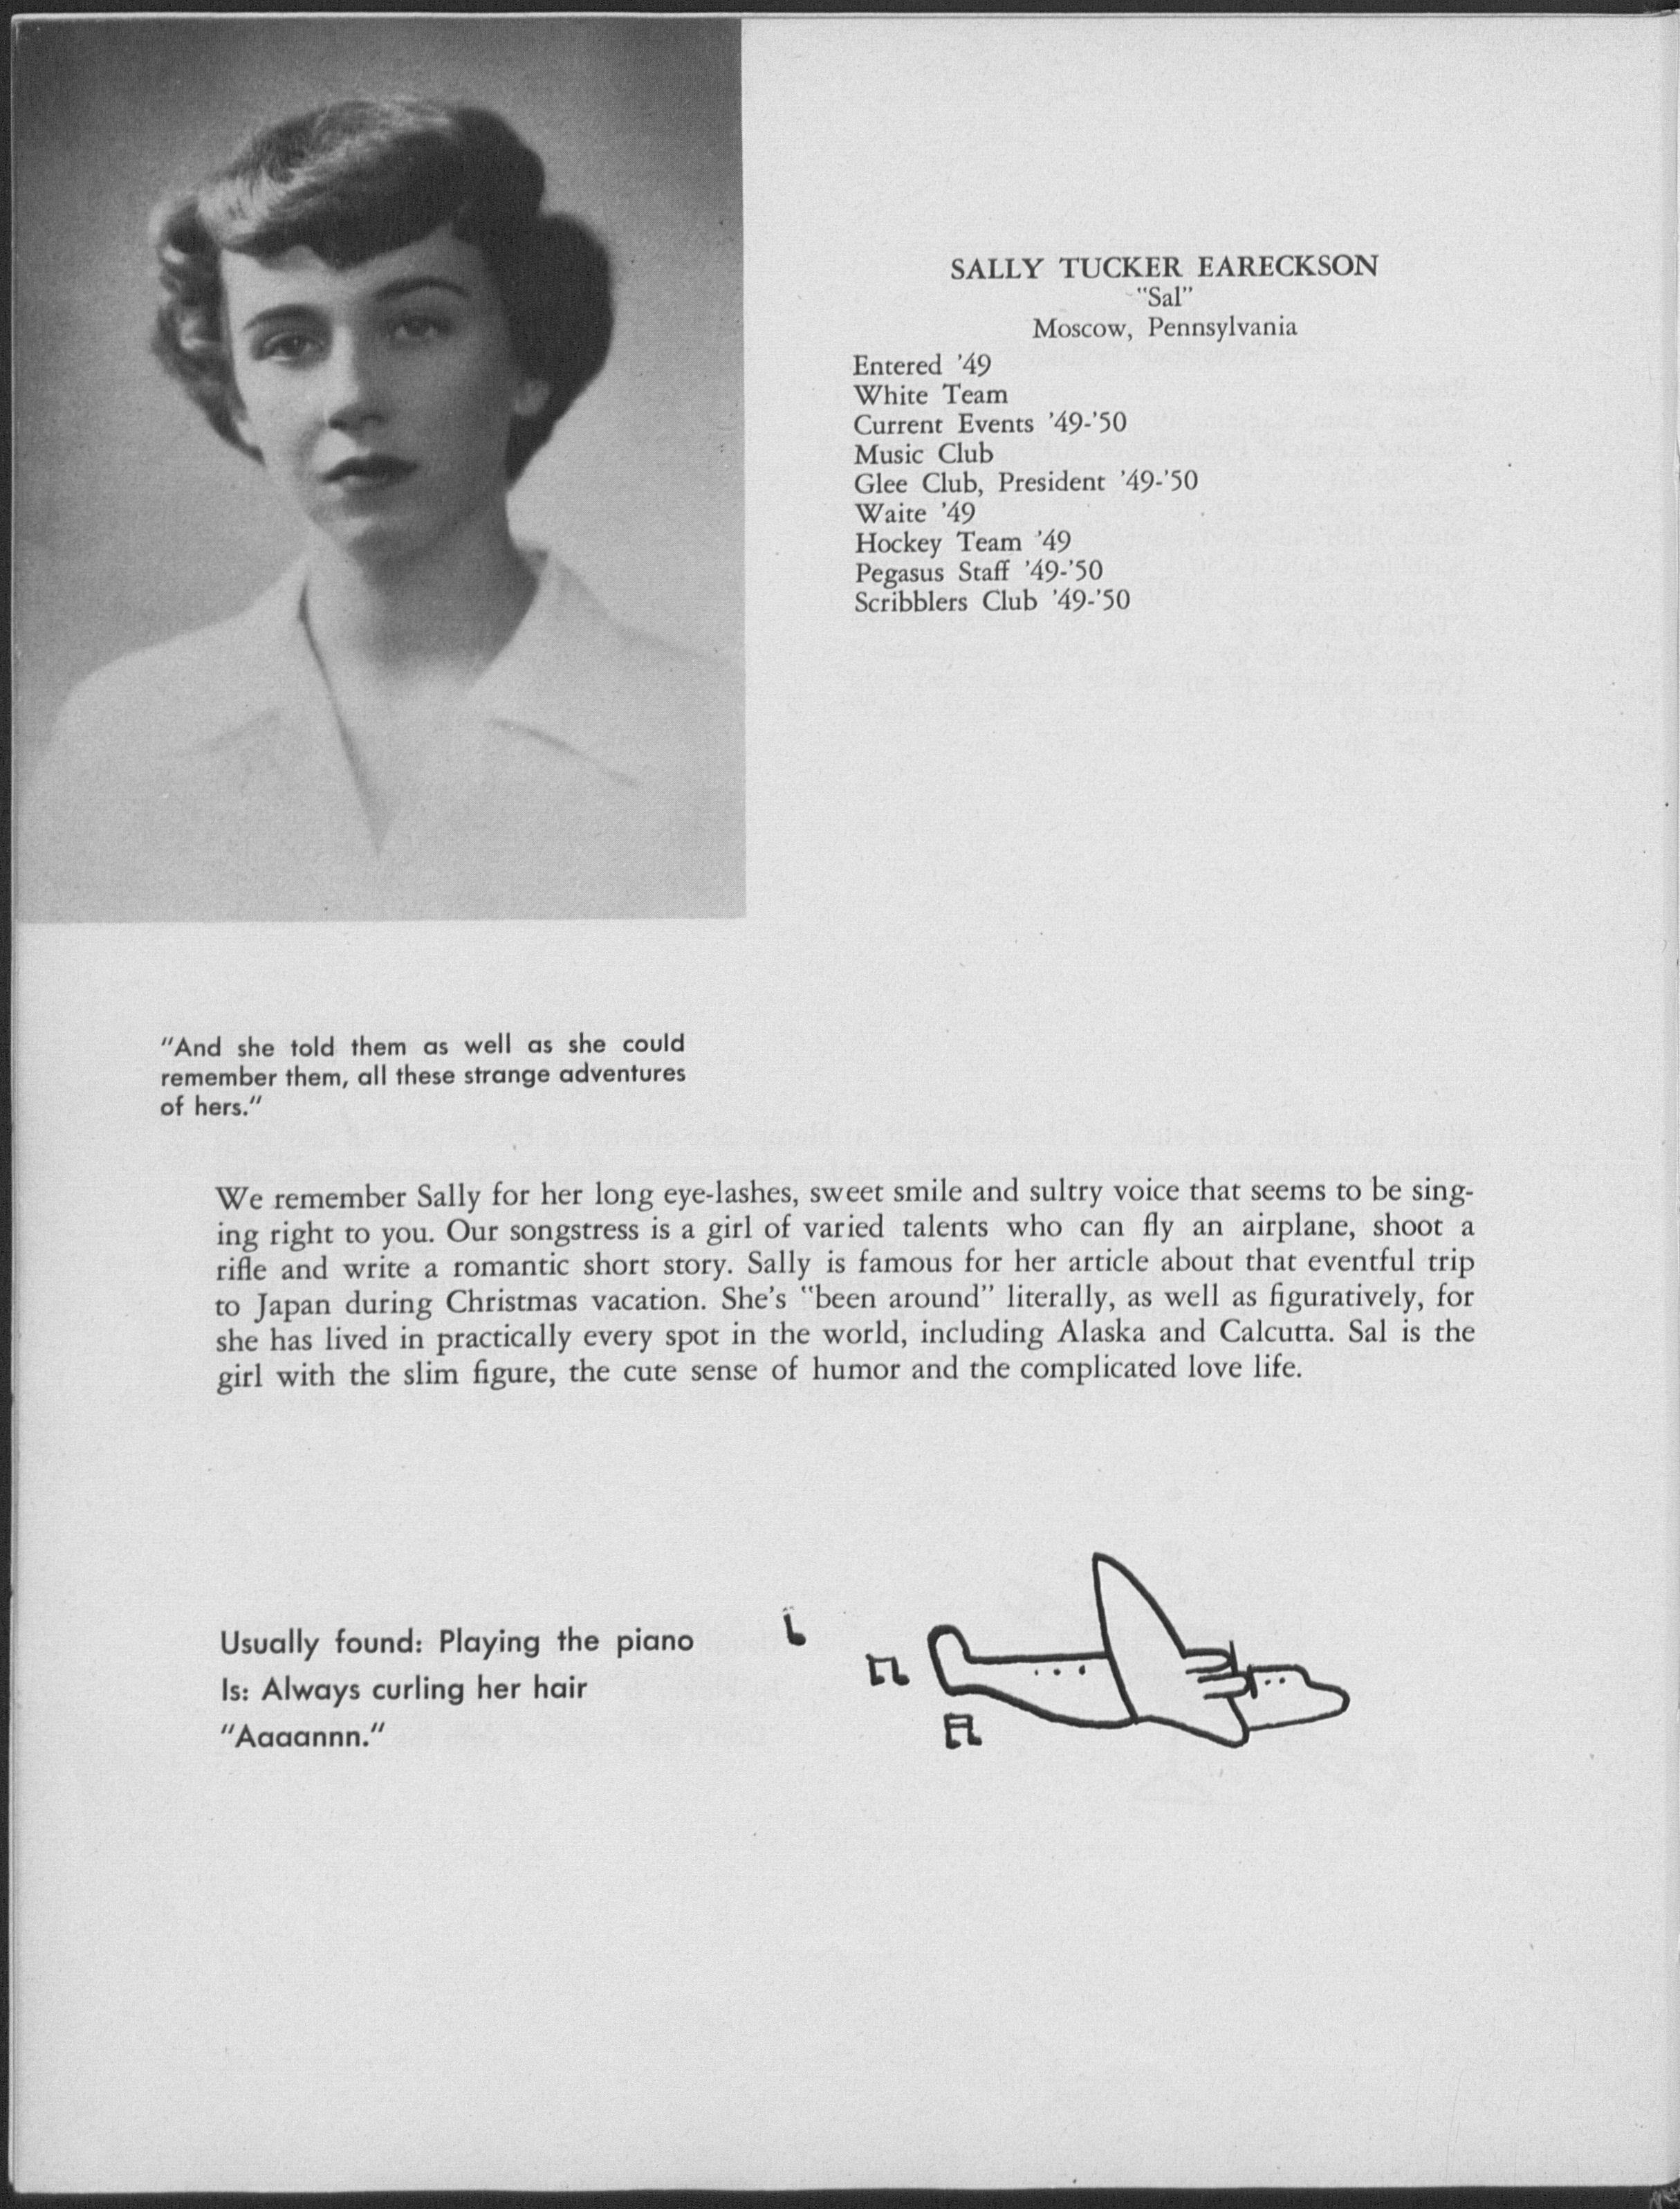 SALLY TUCKER EARECKSON
"Sal"
Moscow, Pennsylvania
Entered '49
White Team
Current Events '49-'50
Music Club
Glee Club, President '49-'50
Waite '49
Hockey Team '49
Pegasus Staff '49-'50
Scribblers Club '49-'50
"And she told them as well as she could
remember them, all these strange adventures
of hers."
We remember Sally for her long eye-lashes, sweet smile and sultry voice that seems to be sing-
ing right to you. Our songstress is a girl of varied talents who can fly an airplane, shoot a
rifle and write a romantic short story. Sally is famous for her article about that eventful trip
to Japan during Christmas vacation. She's "been around" literally, as well as figuratively, for
she has lived in practically every spot in the world, including Alaska and Calcutta. Sal is the
girl with the slim figure, the cute sense of humor and the complicated love life.
Usually found: Playing the piano
Is: Always curling her hair
"Aaaannn."